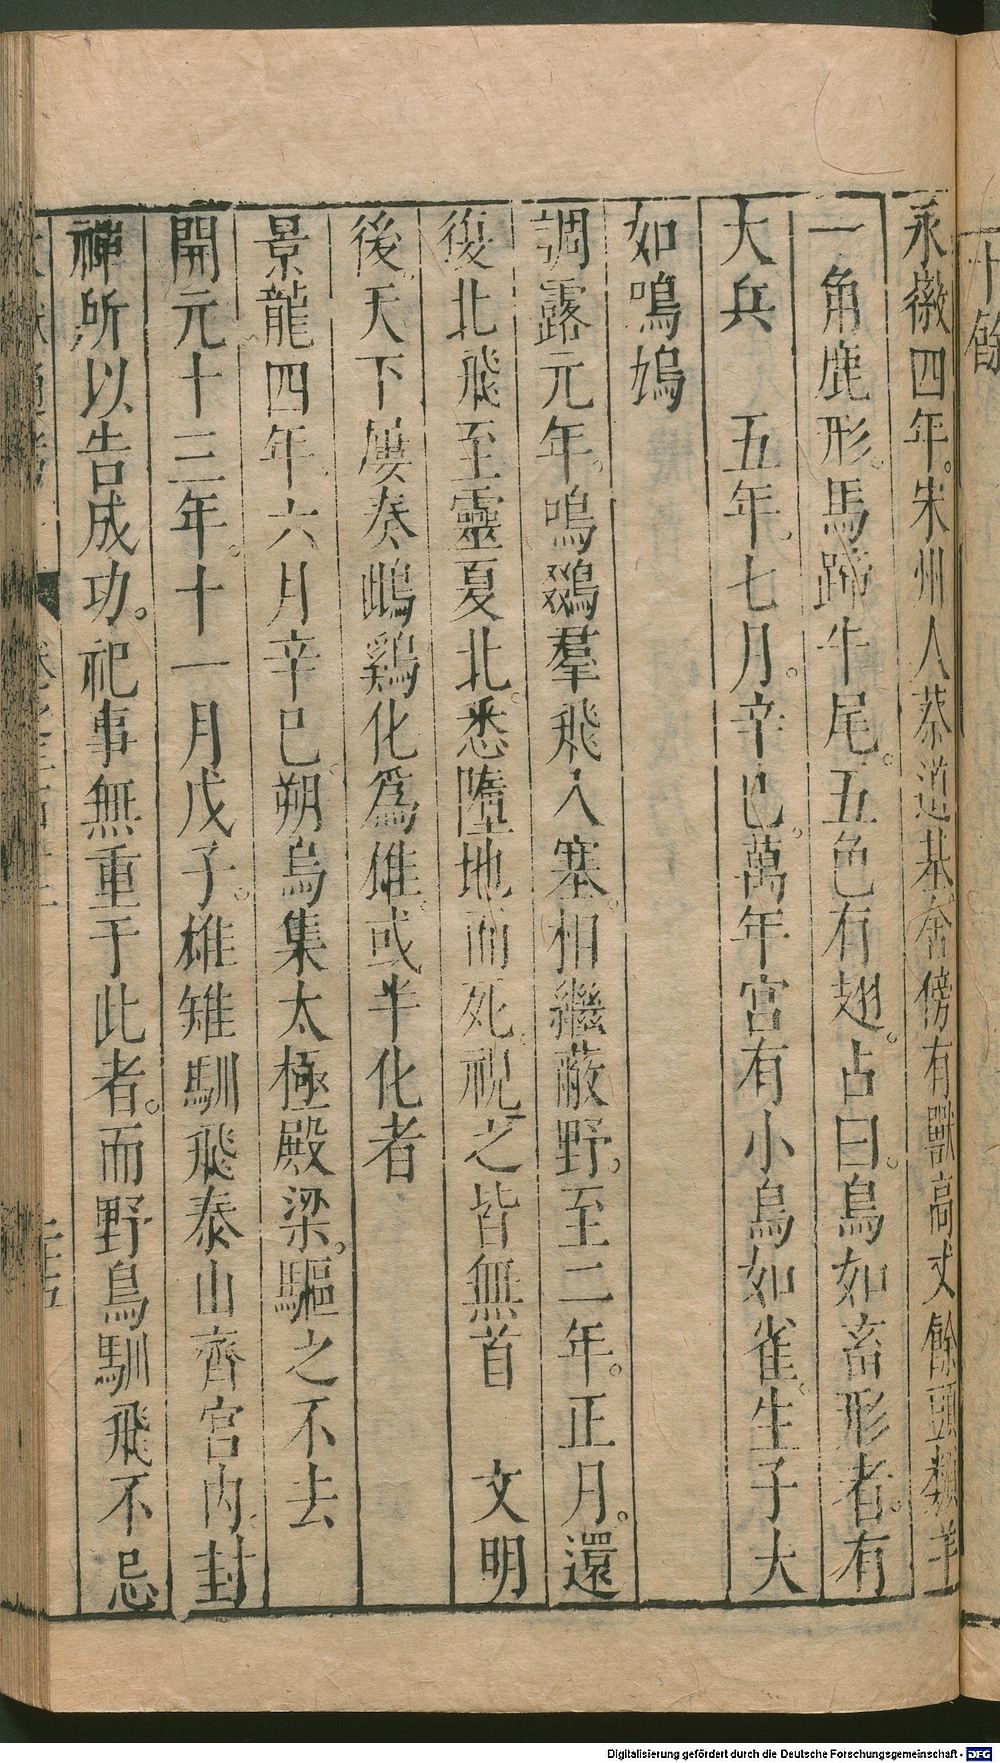 十餘
永徽四年。宋州人蔡道基舍傍有獸高丈餘頭類羊
一角鹿形。馬蹄牛尾。五色有翅。占曰。鳥如畜形者。有
大兵　五年。七月。辛巳。萬年宮有小鳥如雀。生子大
如鳴鳩
調露元年。鳴鵽羣飛入塞。相繼蔽野。至二年。正月。還
復北飛至靈夏北。悉墮地而死。視之皆無首　文明
後。天下屢奏雌鷄化爲雄。或半化者
景龍四年。六月辛巳。朔烏集太極殿梁。驅之不去
開元十三年。十一月戊子。雄雉馴飛泰山齊宮內。封
禪所以告成功。祀事無重于此者。而野鳥馴飛不忌